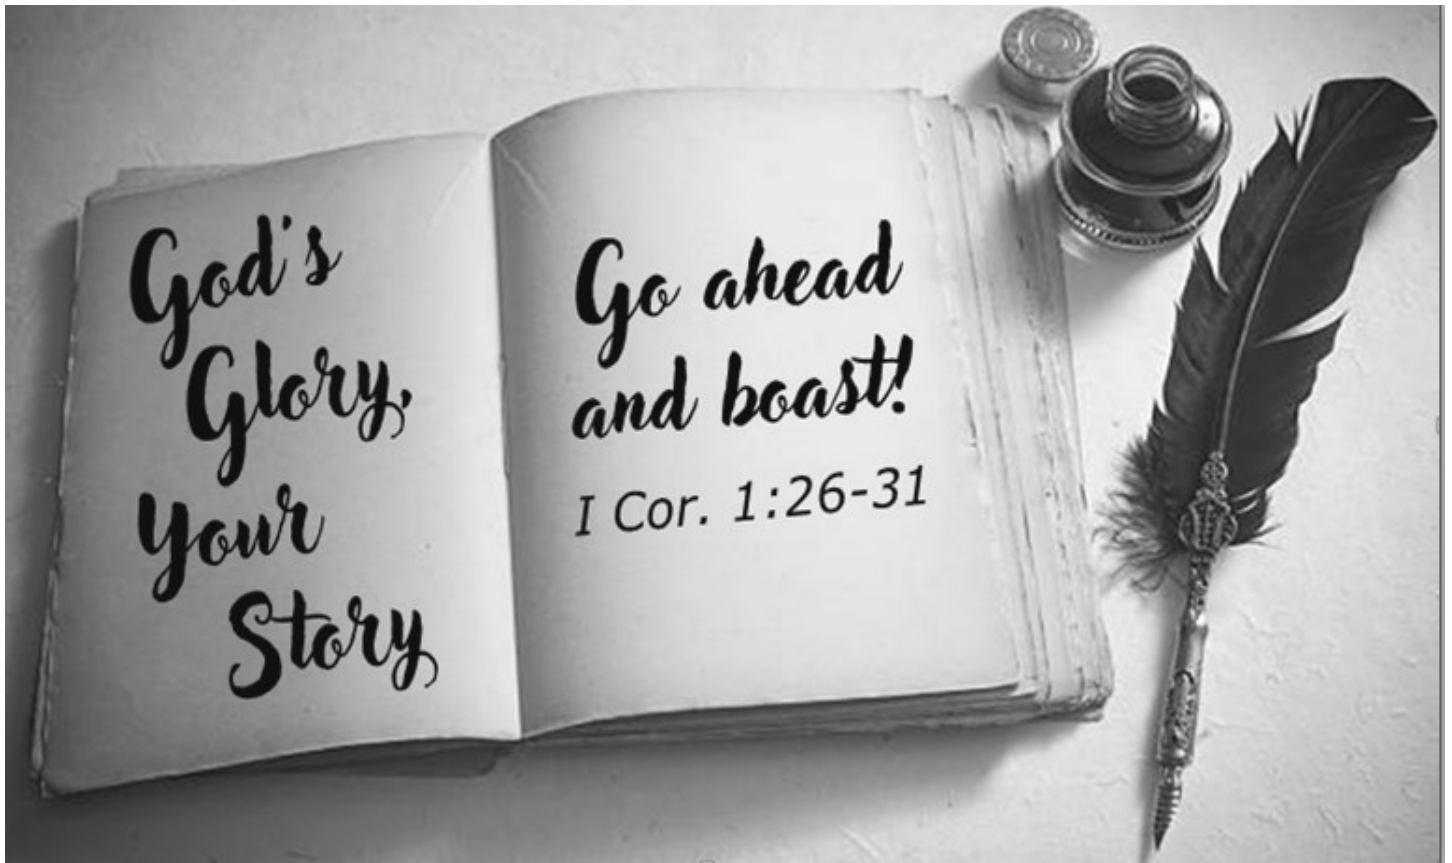 God's
Glory,
Your
Story
Go ahead
and boast!
I Cor. 1:26-31